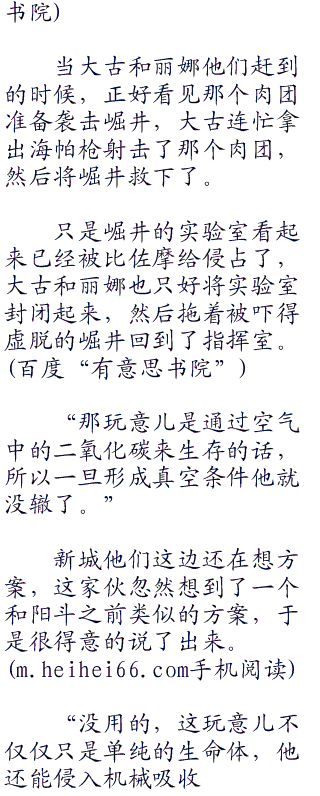 书院)
当大古和丽娜他们赶到
的时候，正好看见那个肉团
准备袭击崛井，大古连忙拿
出海帕枪射击了那个肉团，
然后将崛井救下了。
只是崛井的实验室看起
来已经被比佐摩给侵占了，
大古和丽娜也只好将实验室
封闭起来，然后拖着被吓得
虚脱的崛井回到了指挥室。
(百度“有意思书院”)
“那玩意儿是通过空气
中的二氧化碳来生存的话，
所以一旦形成真空条件他就
没辙了。”
新城他们这边还在想方
案，这家伙忽然想到了一个
和阳斗之前类似的方案，于
是很得意的说了出来。
(m.heihei66.com手机阅读)
“没用的，这玩意儿不
仅仅只是单纯的生命体，他
还能侵入机械吸收